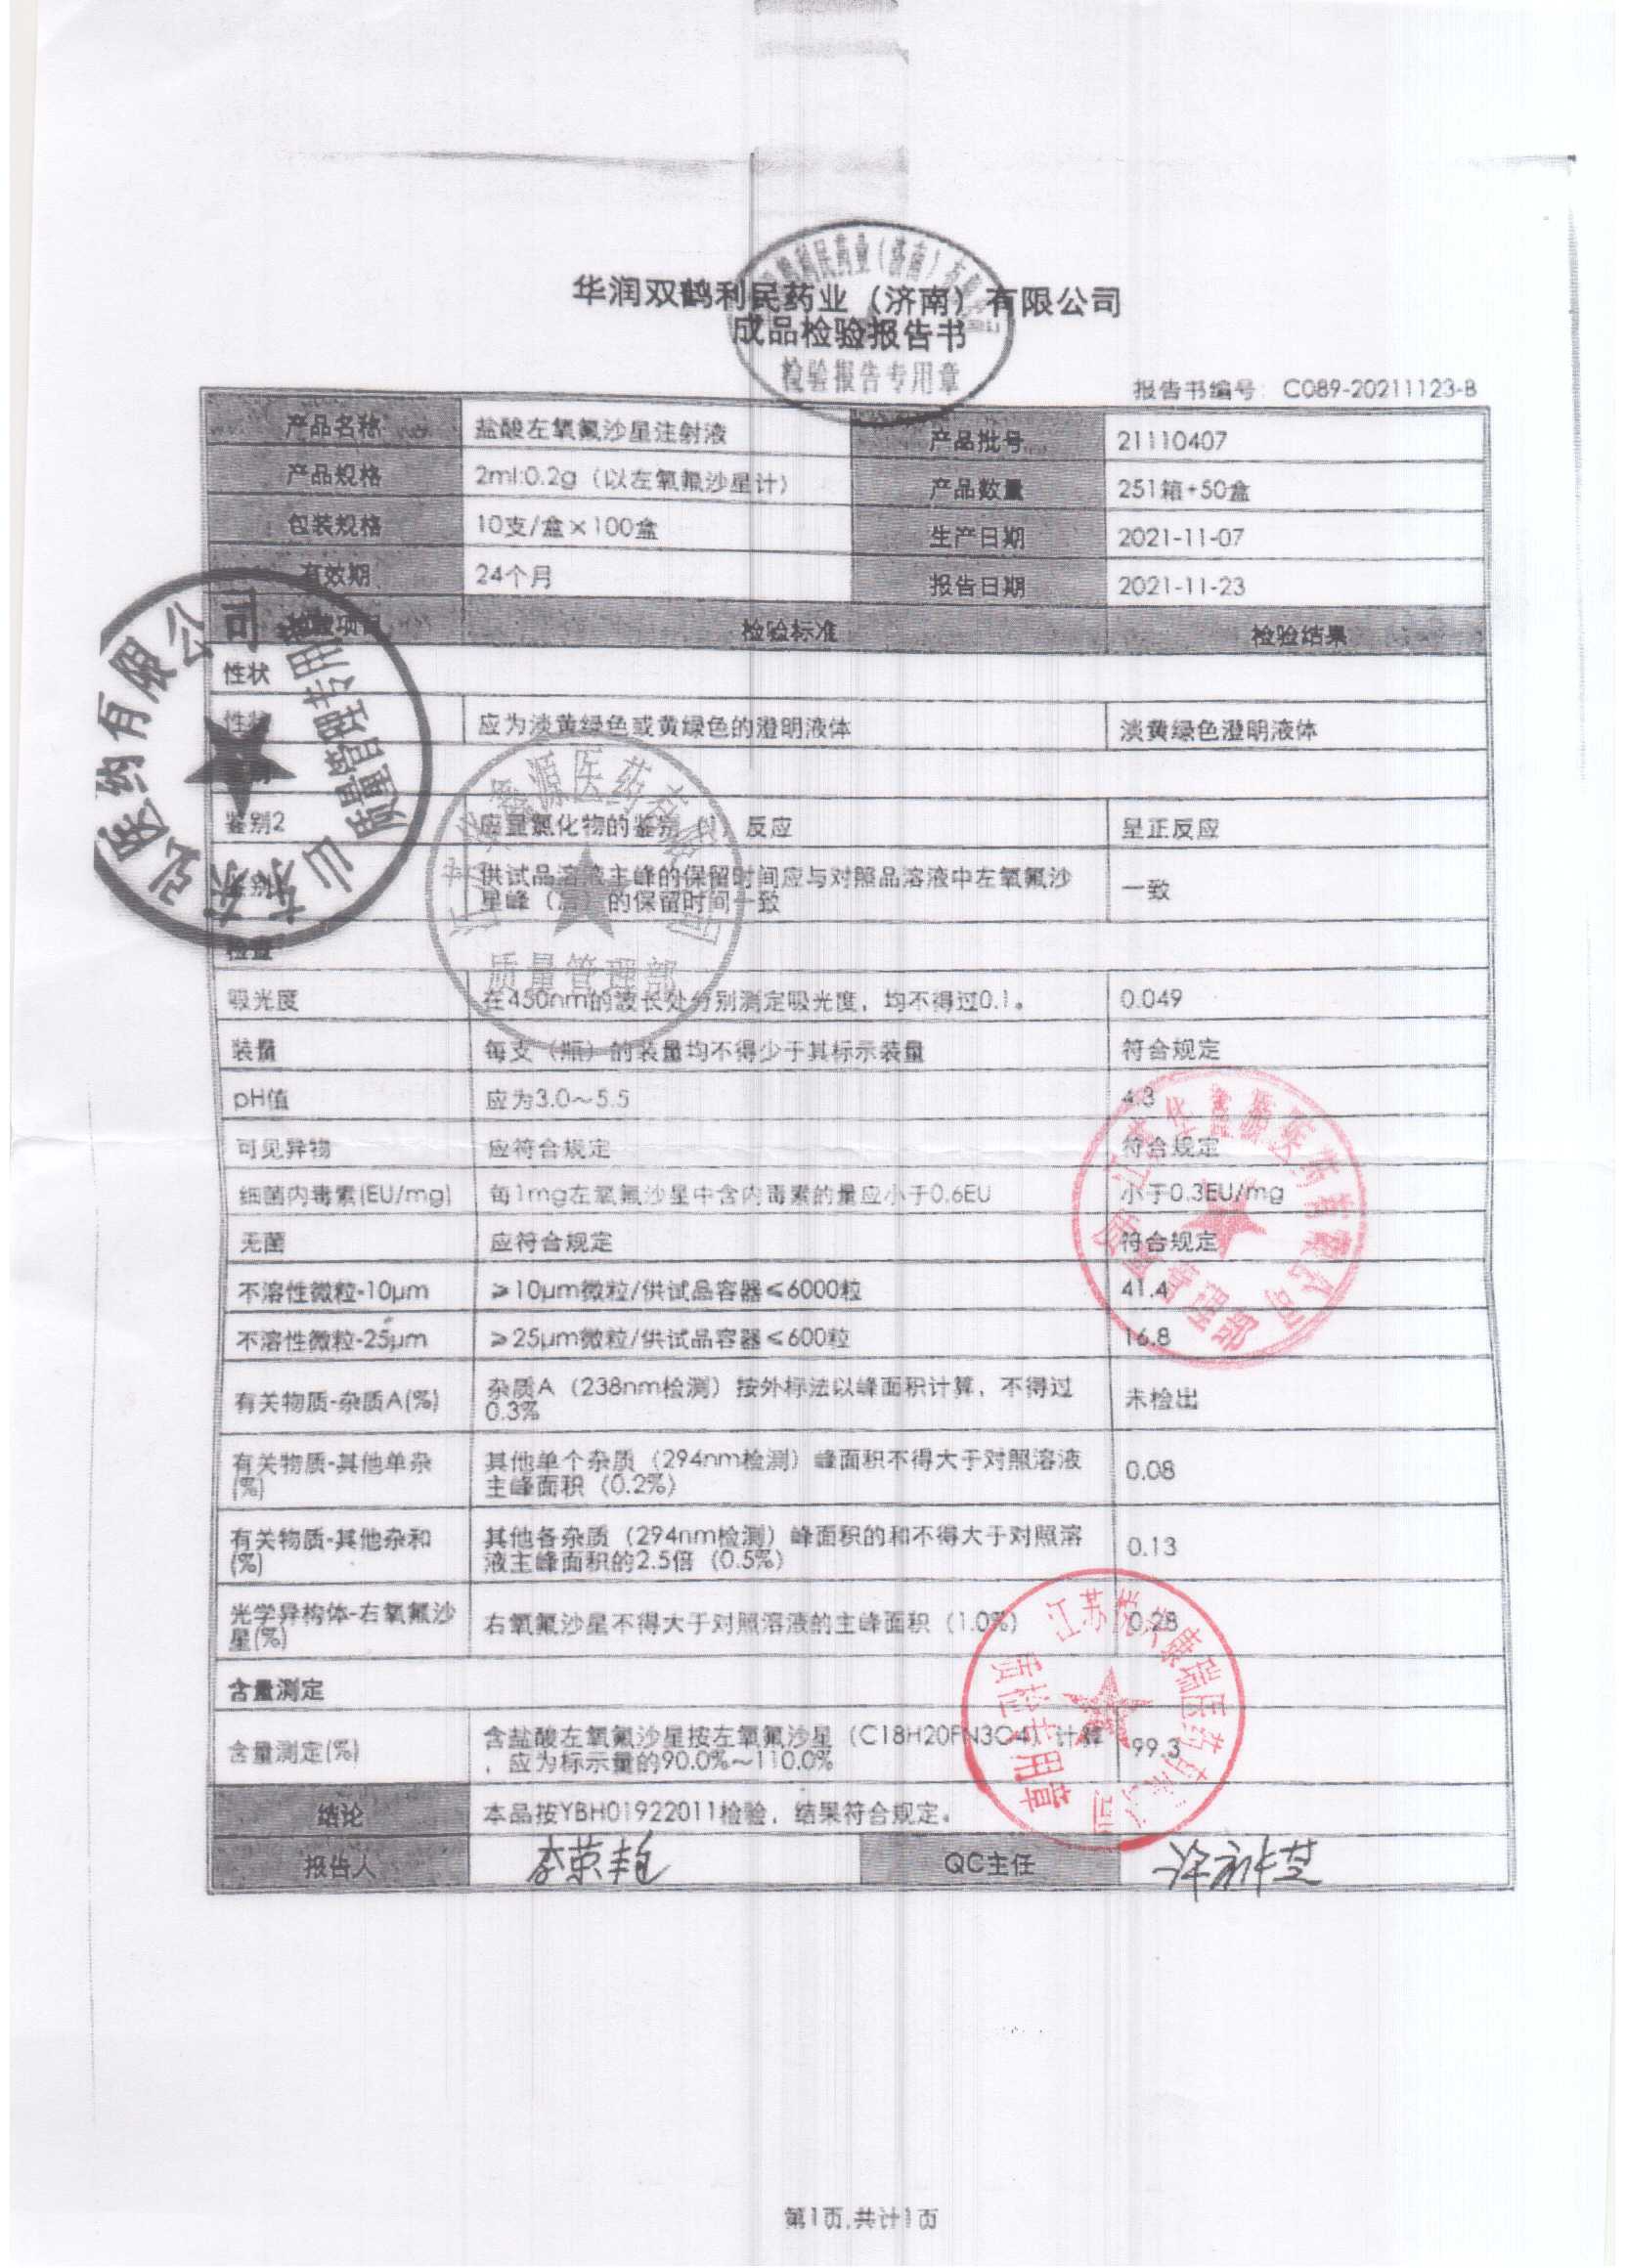 华润双鹤利民药业（济南）有限公司
成品检验报告书
检验报告专用章
报告书编号: C089-20211123-B
产品名称 盐酸左氧氟沙星注射液 产品批号 21110407
产品规格 2ml:0.2g（以左氧氟沙星计） 产品数量 251箱+50盒
包装规格 10支/盒×100盒 生产日期 2021-11-07
有效期 24个月 报告日期 2021-11-23
项目 检验标准 检验结果
性状
性状 应为淡黄绿色或黄绿色的澄明液体 淡黄绿色澄明液体
鉴别2 应呈氯化物的鉴别（1）反应 呈正反应
鉴别 供试品溶液主峰的保留时间应与对照品溶液中左氧氟沙
星峰（后）的保留时间一致 一致
检查
吸光度 在450nm的波长处分别测定吸光度，均不得过0.1。 0.049
装量 每支（瓶）的装量均不得少于其标示装量 符合规定
pH值 应为3.0～5.5 4.3
可见异物 应符合规定 符合规定
细菌内毒素(EU/mg) 每1mg左氧氟沙星中含内毒素的量应小于0.6EU 小于0.3EU/mg
无菌 应符合规定 符合规定
不溶性微粒-10μm ≥10μm微粒/供试品容器≤6000粒 41.4
不溶性微粒-25μm ≥25μm微粒/供试品容器≤600粒 16.8
有关物质-杂质A(%) 杂质A（238nm检测）按外标法以峰面积计算，不得过
0.3% 未检出
有关物质-其他单杂
(%) 其他单个杂质（294nm检测）峰面积不得大于对照溶液
主峰面积（0.2%） 0.08
有关物质-其他杂和
(%) 其他各杂质（294nm检测）峰面积的和不得大于对照溶
液主峰面积的2.5倍（0.5%） 0.13
光学异构体-右氧氟沙
星(%) 右氧氟沙星不得大于对照溶液的主峰面积（1.0%） 0.28
含量测定
含量测定(%) 含盐酸左氧氟沙星按左氧氟沙星（C18H20FN3O4）计算
，应为标示量的90.0%～110.0% 99.3
结论 本品按YBH01922011检验，结果符合规定。
报告人 李荣艳 QC主任
质量管理专用章
质量管理部
质量管理部
质检专用章
第1页,共计1页